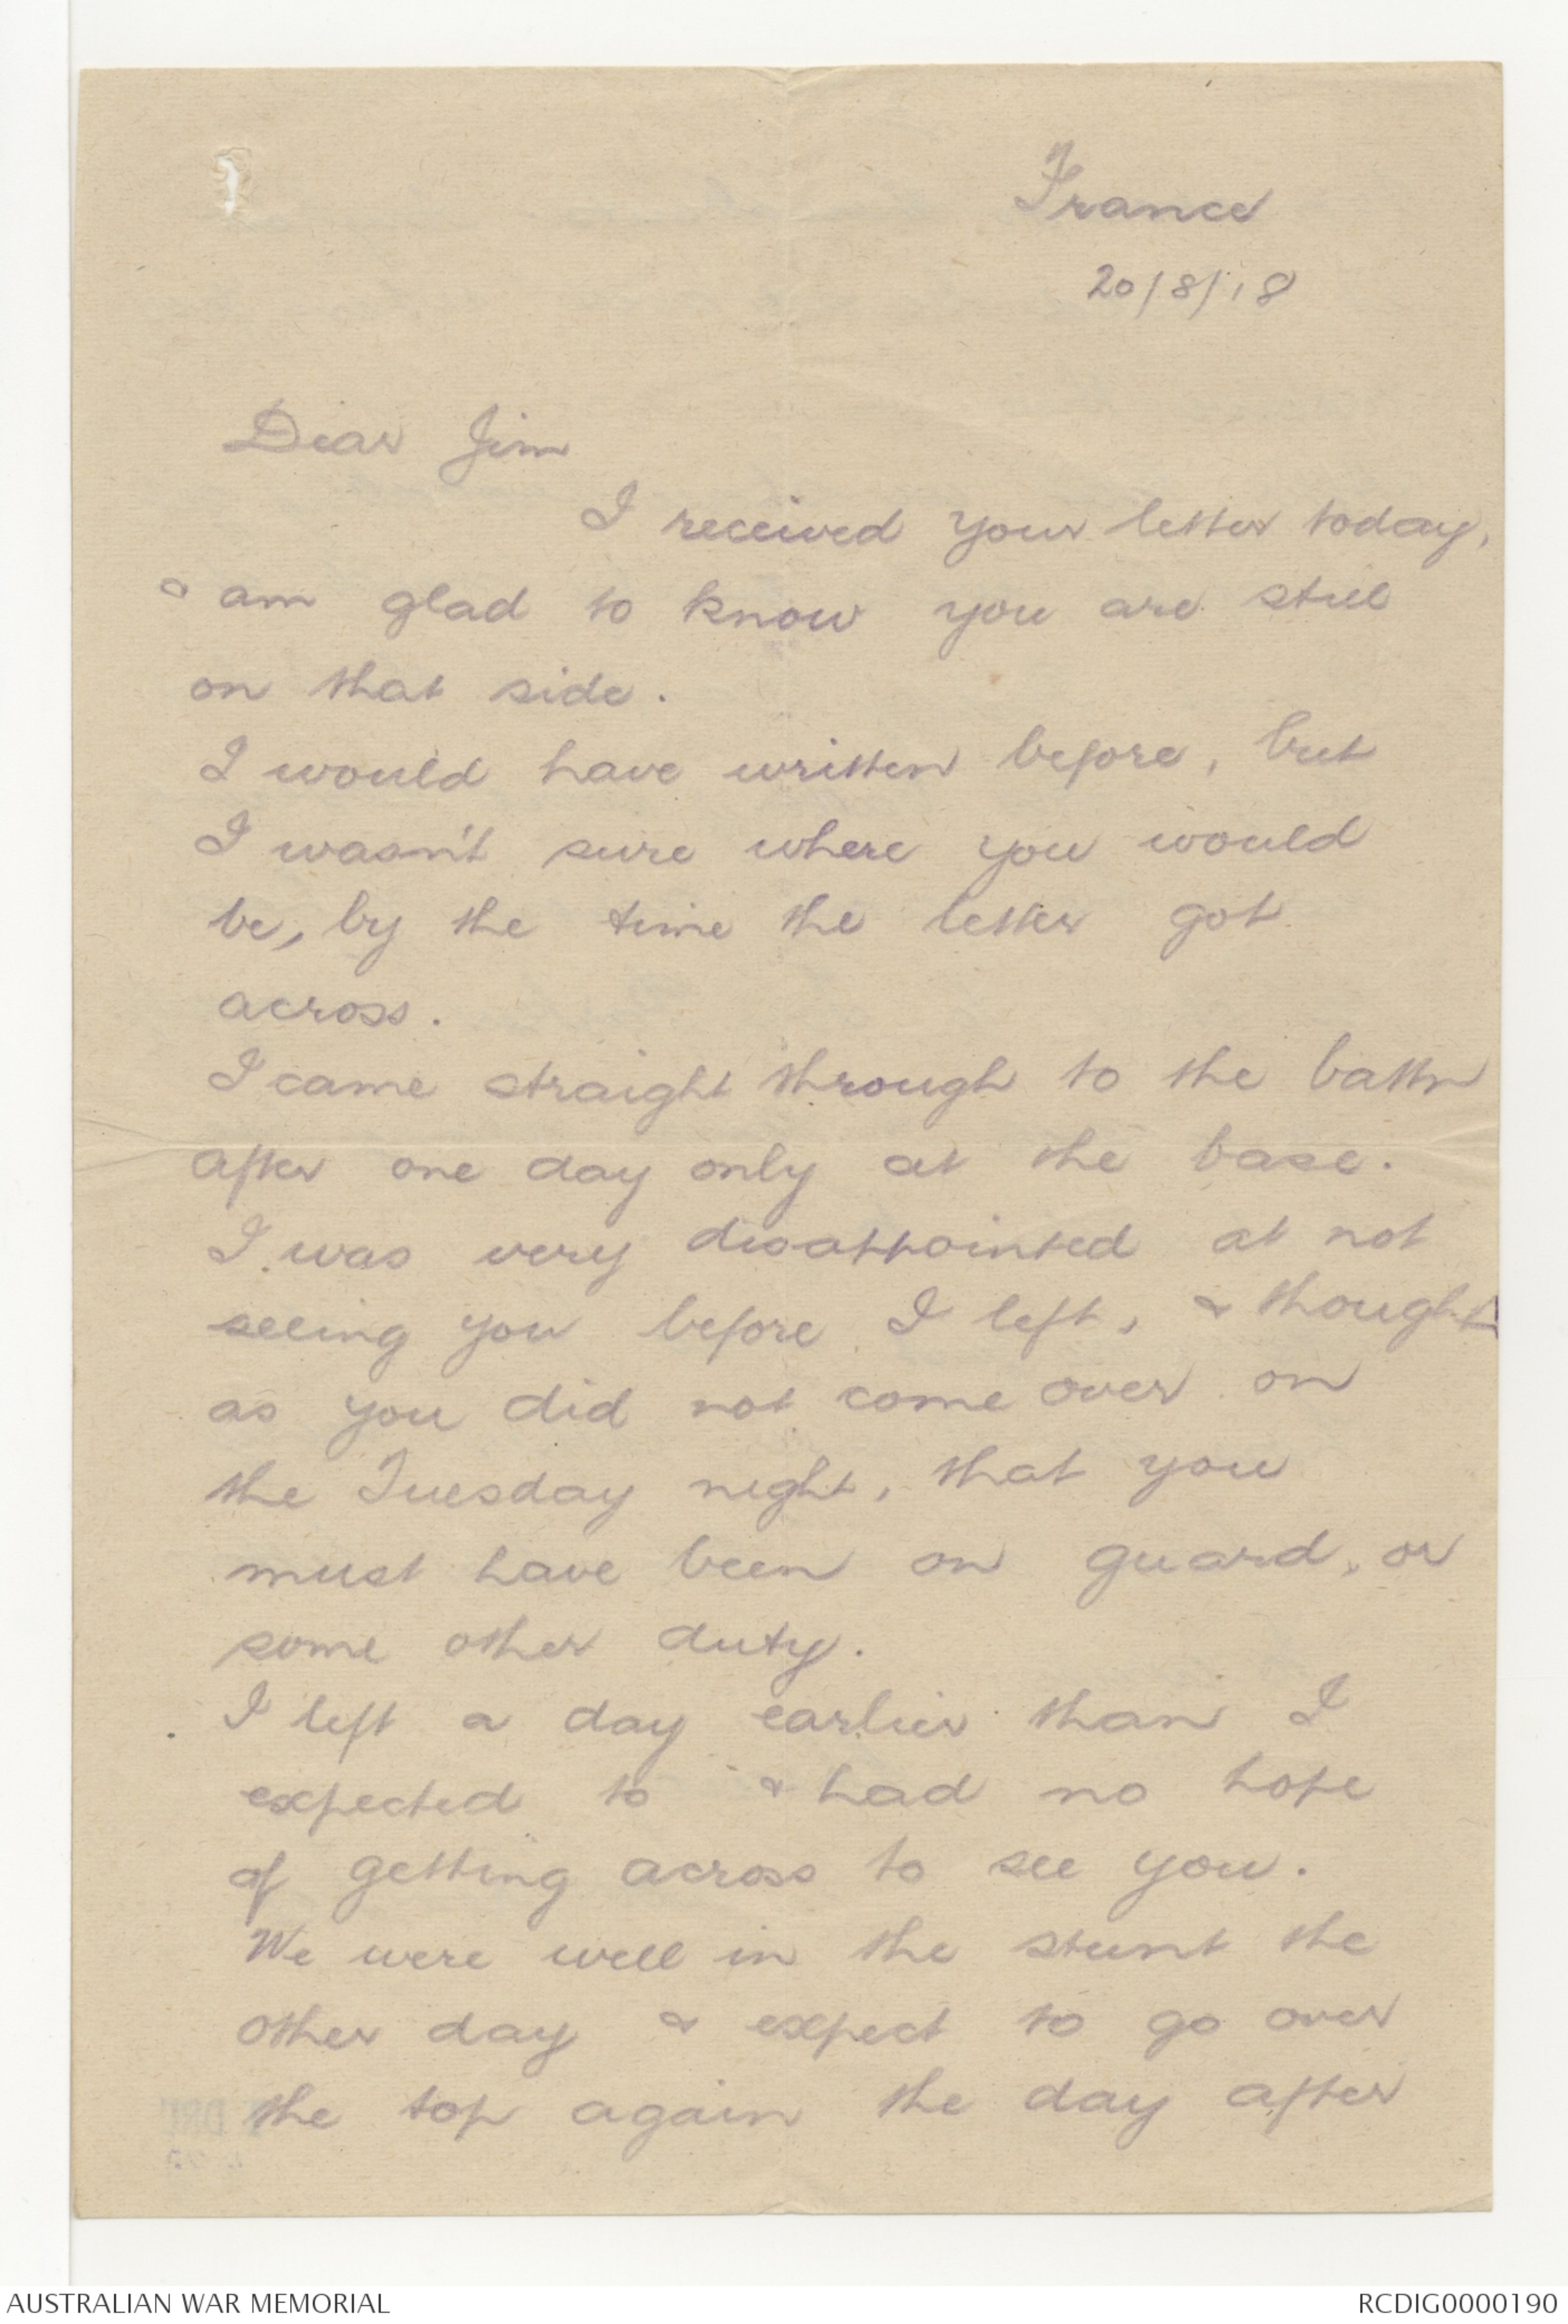 France
20/8/18
Dear Jim
I received your letter today,
& am glad to know you are still
on that side.
I would have written before, but
I wasn't sure where you would
be, by the time the letter got
across.
I came straight through to the battn
after one day only at the base.
I was very disappointed at not
seeing you before I left, & thought
as you did not come over on
the Tuesday night, that you
must have been on guard, or
some other duty.
I left a day earlier than I
expected to & had no hope
of getting across to see you.
We were well in the stunt the
other day & expect to go over
the top again the day after
AUSTRALIAN WAR MEMORIAL
RCDIG0000190